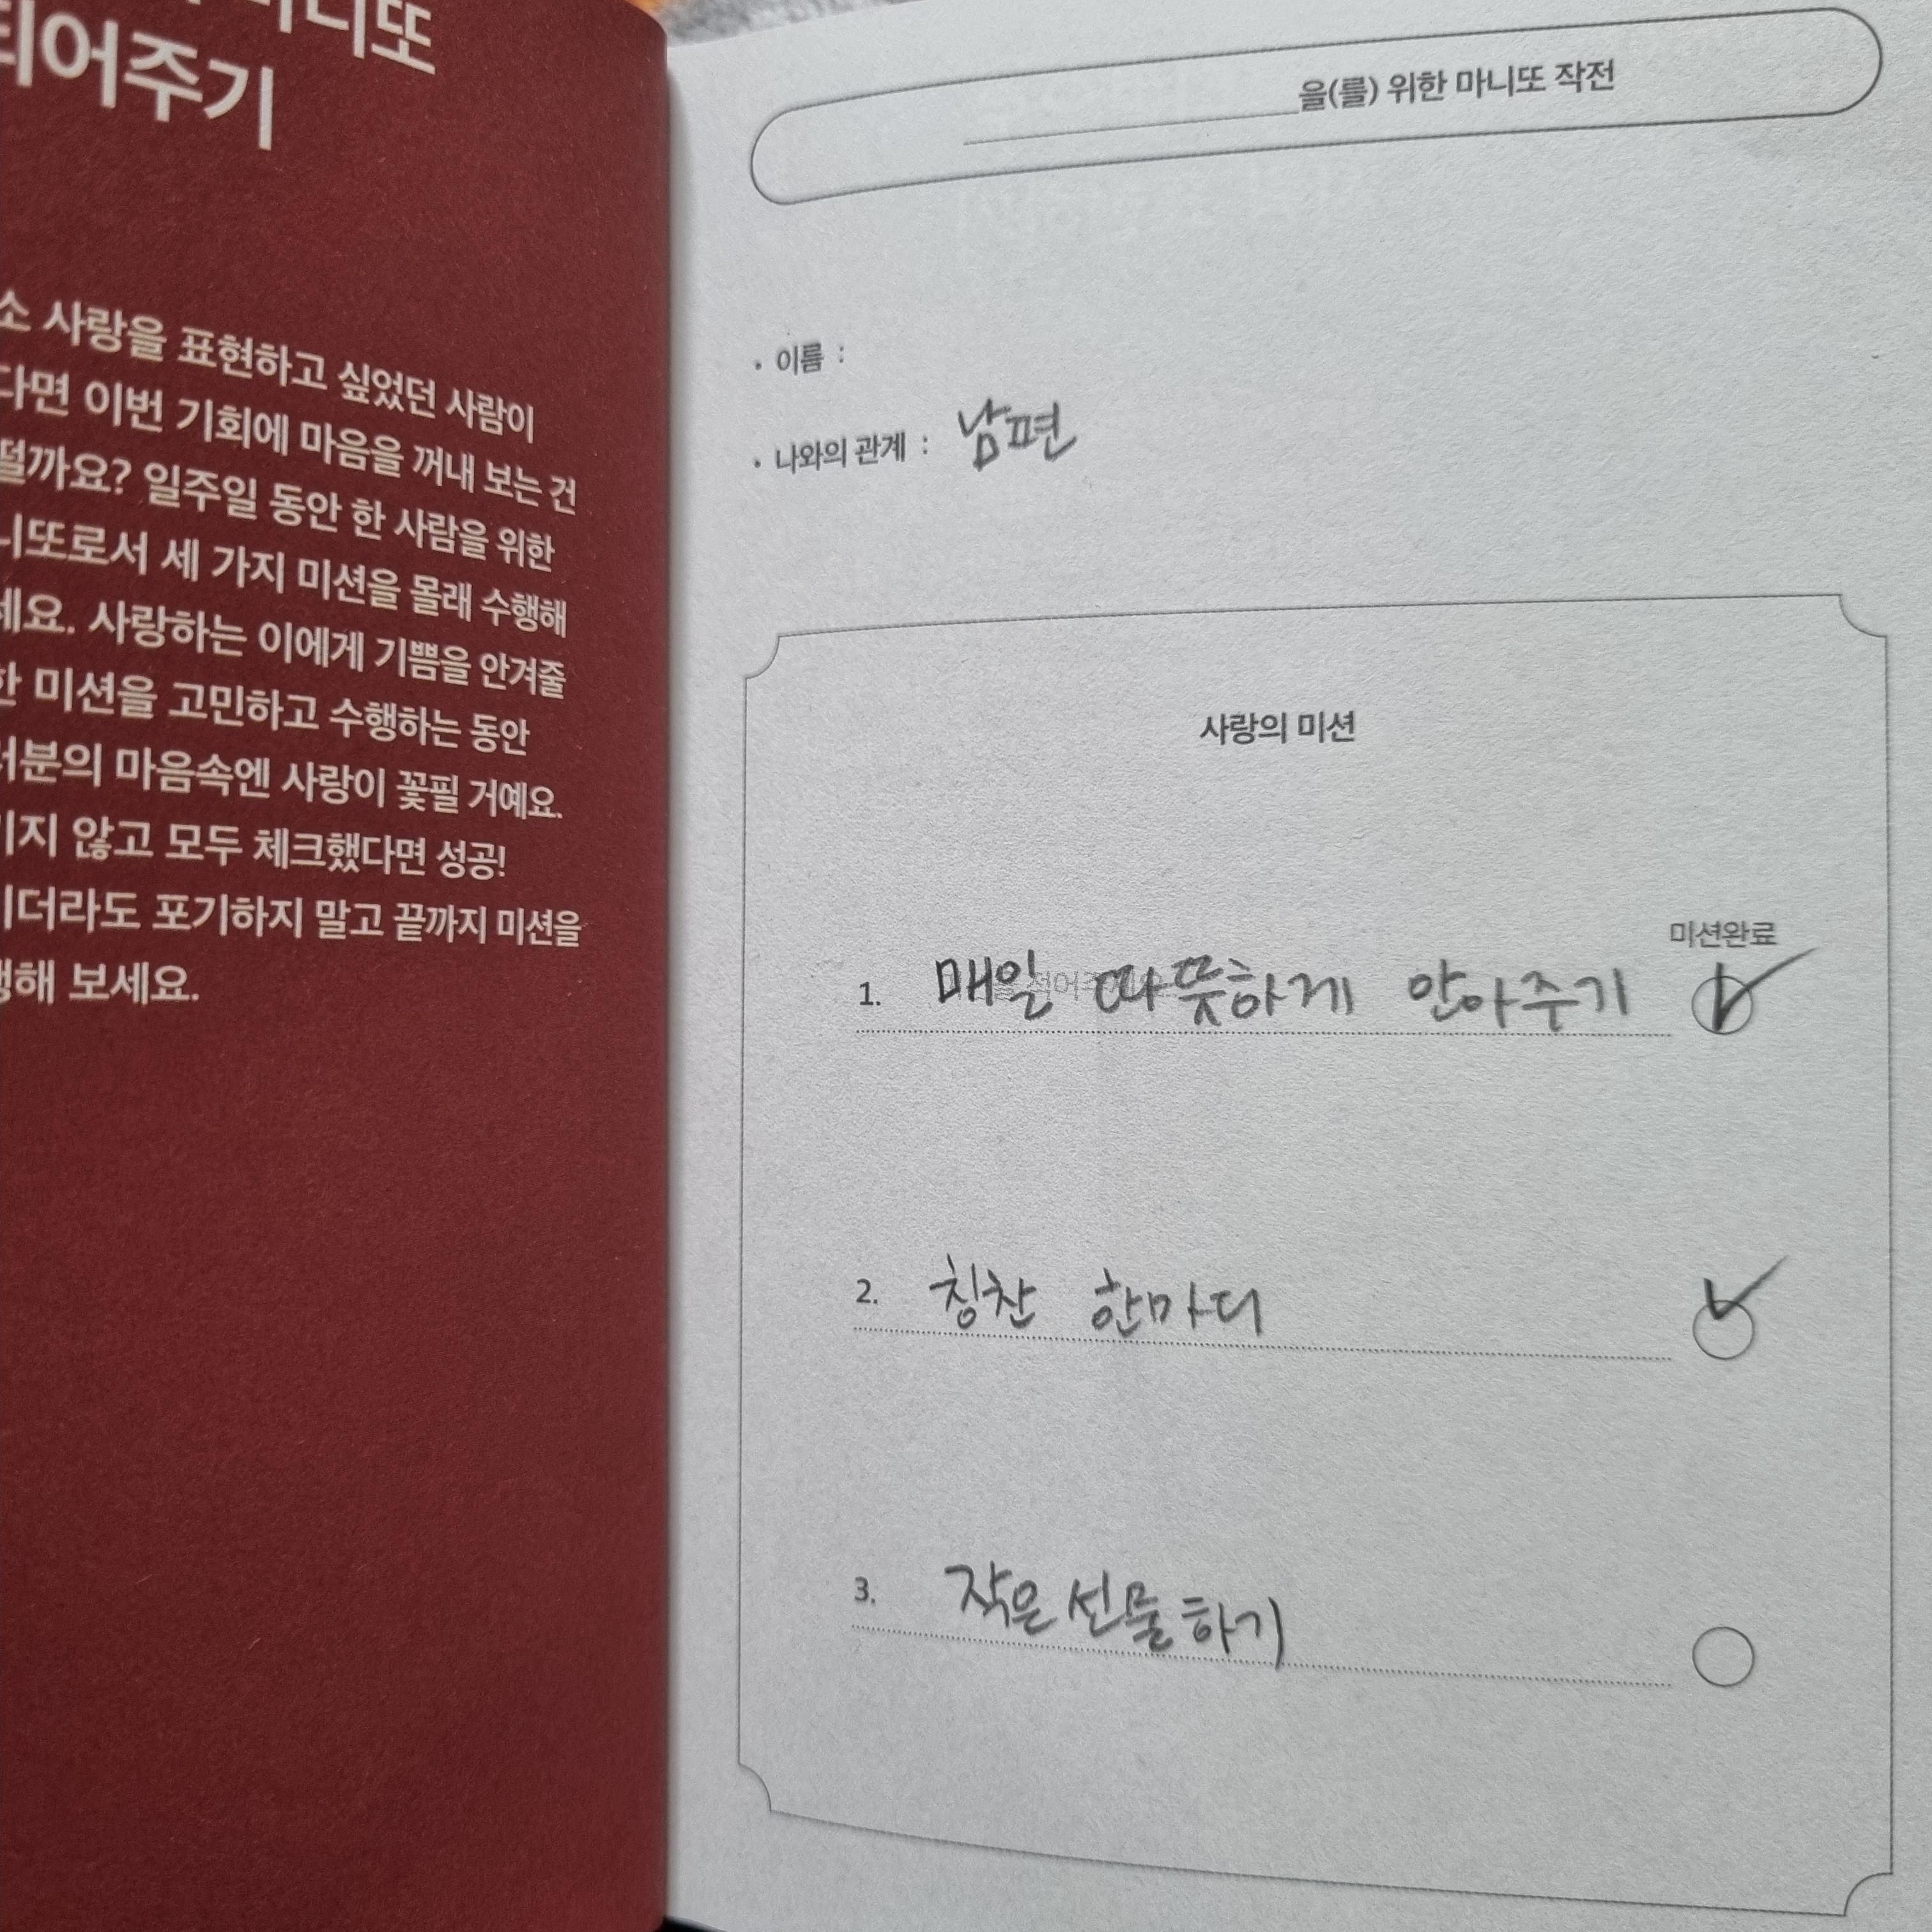 마니또
되어주기
소 사랑을 표현하고 싶었던 사람이
다면 이번 기회에 마음을 꺼내 보는 건
떨까요? 일주일 동안 한 사람을 위한
니또로서 세 가지 미션을 몰래 수행해
세요. 사랑하는 이에게 기쁨을 안겨줄
한 미션을 고민하고 수행하는 동안
러분의 마음속엔 사랑이 꽃필 거예요.
기지 않고 모두 체크했다면 성공!
이더라도 포기하지 말고 끝까지 미션을
행해 보세요.
을(를) 위한 마니또 작전
• 이름 :
• 나와의 관계 : 남편
사랑의 미션
미션완료
1. 매일 따뜻하게 안아주기
2. 칭찬 한마디
3. 작은 선물하기